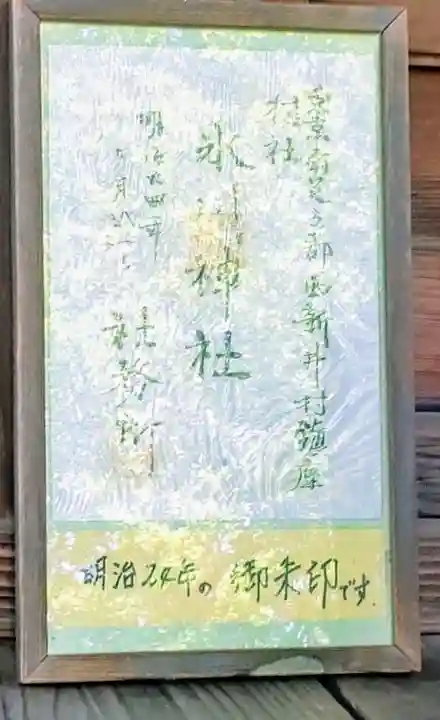 東京府足立郡西新井村鎮座
村社
氷川神社
明治廿四年
社務所
明治24年の御朱印です